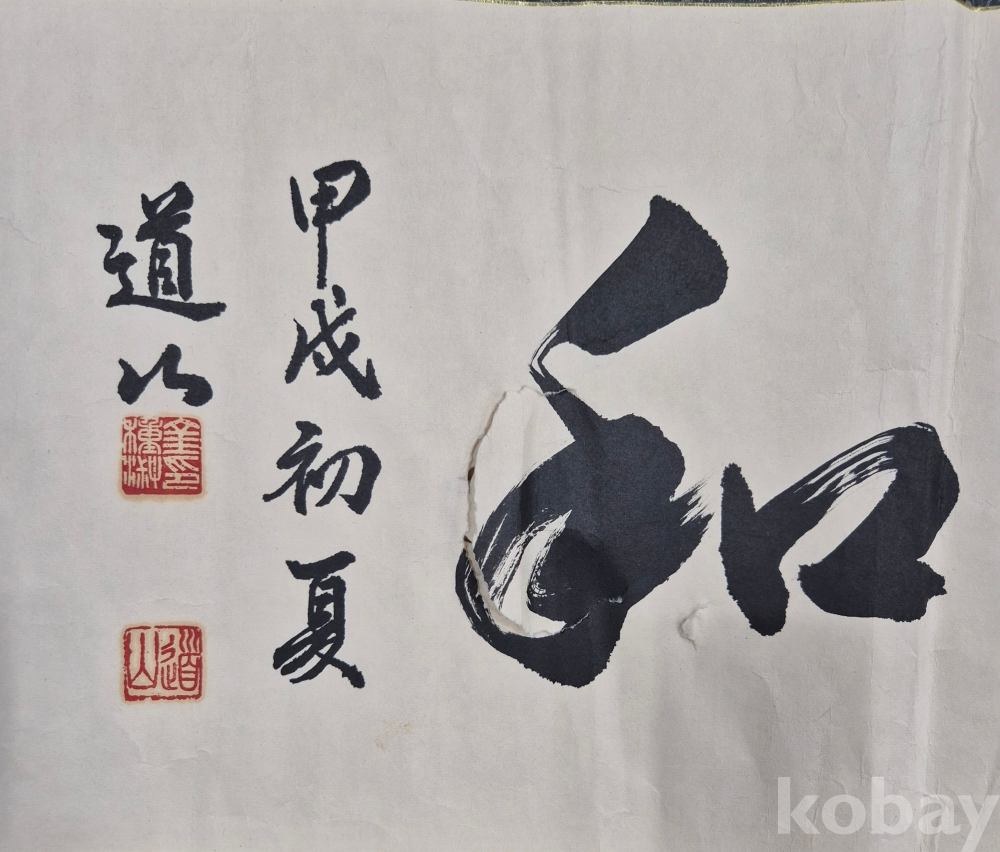 和
甲戌初夏
道山
道山
kobay